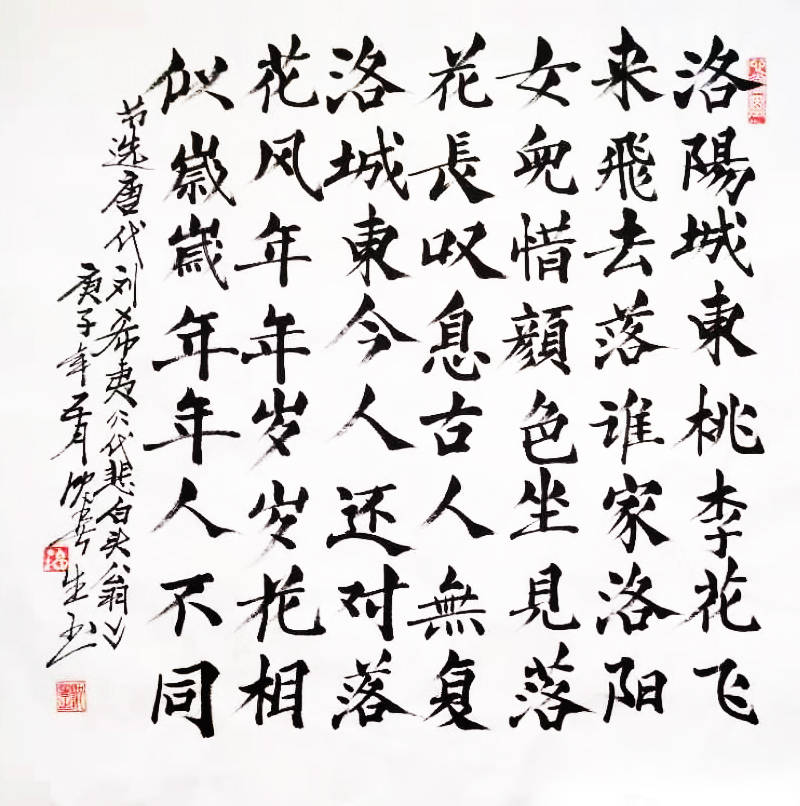 洛陽城東桃李花飞
来飛去落谁家洛阳
女兒惜顔色坐見落
花長叹息古人無复
洛城東今人还对落
花风年年岁岁花相
似嵗歲年年人不同
节选唐代刘希夷《代悲白头翁》
庚子年五月沈生书